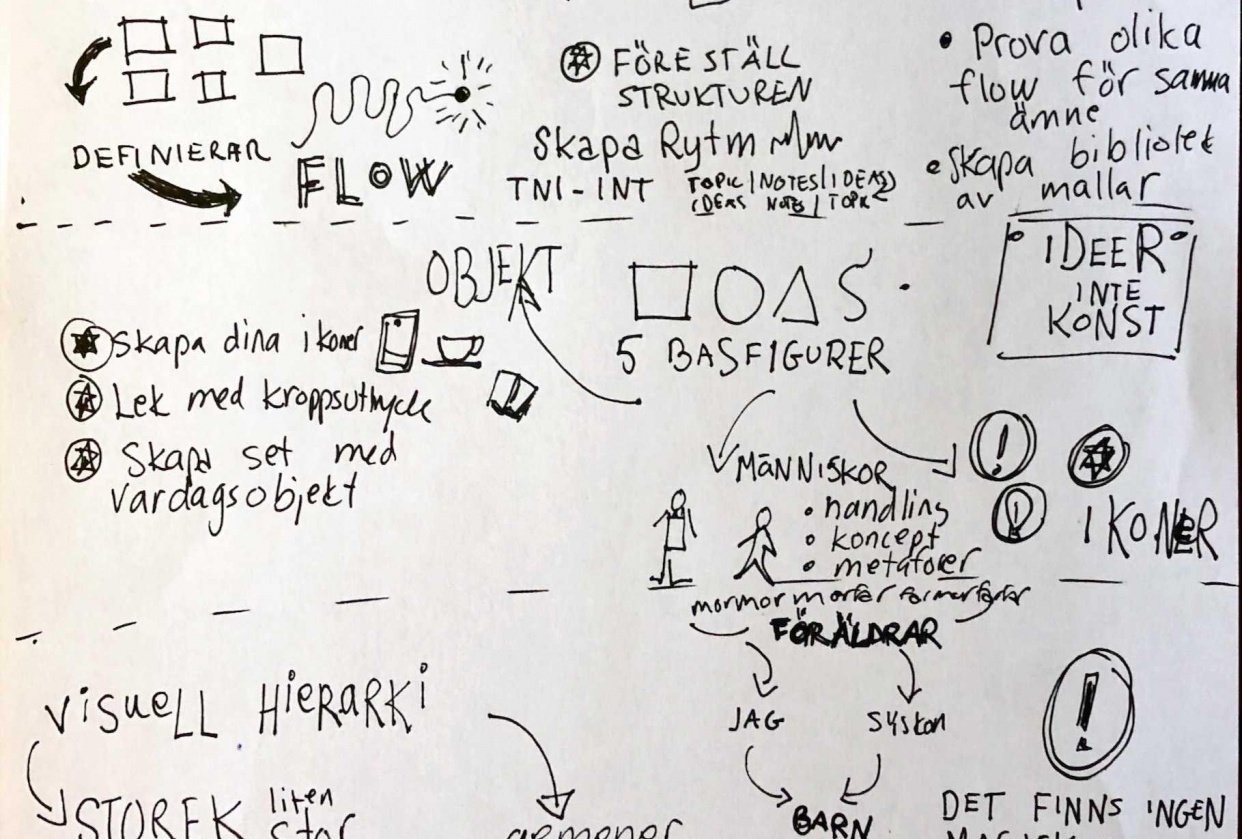 DEFINIERAR
FLOW
FÖRESTÄLL
STRUKTUREN
Skapa Rytm
TNI - INT
TOPIC | NOTES | IDEAS
IDEAS NOTES | TOPIC
• Prova olika
flow för samma
ämne
• Skapa bibliotek
av mallar
OBJEKT
Skapa dina ikoner
Lek med kroppsuttryck
Skapa set med
vardagsobjekt
5 BASFIGURER
IDEER
INTE
KONST
MÄNNISKOR
• handling
• koncept
• metaforer
! 
IKONER
mormor morfar farmor farfar
FÖRÄLDRAR
JAG
SYSKON
BARN
VISUELL HIERARKI
STORLEK liten
stor
gemener
!
DET FINNS INGEN